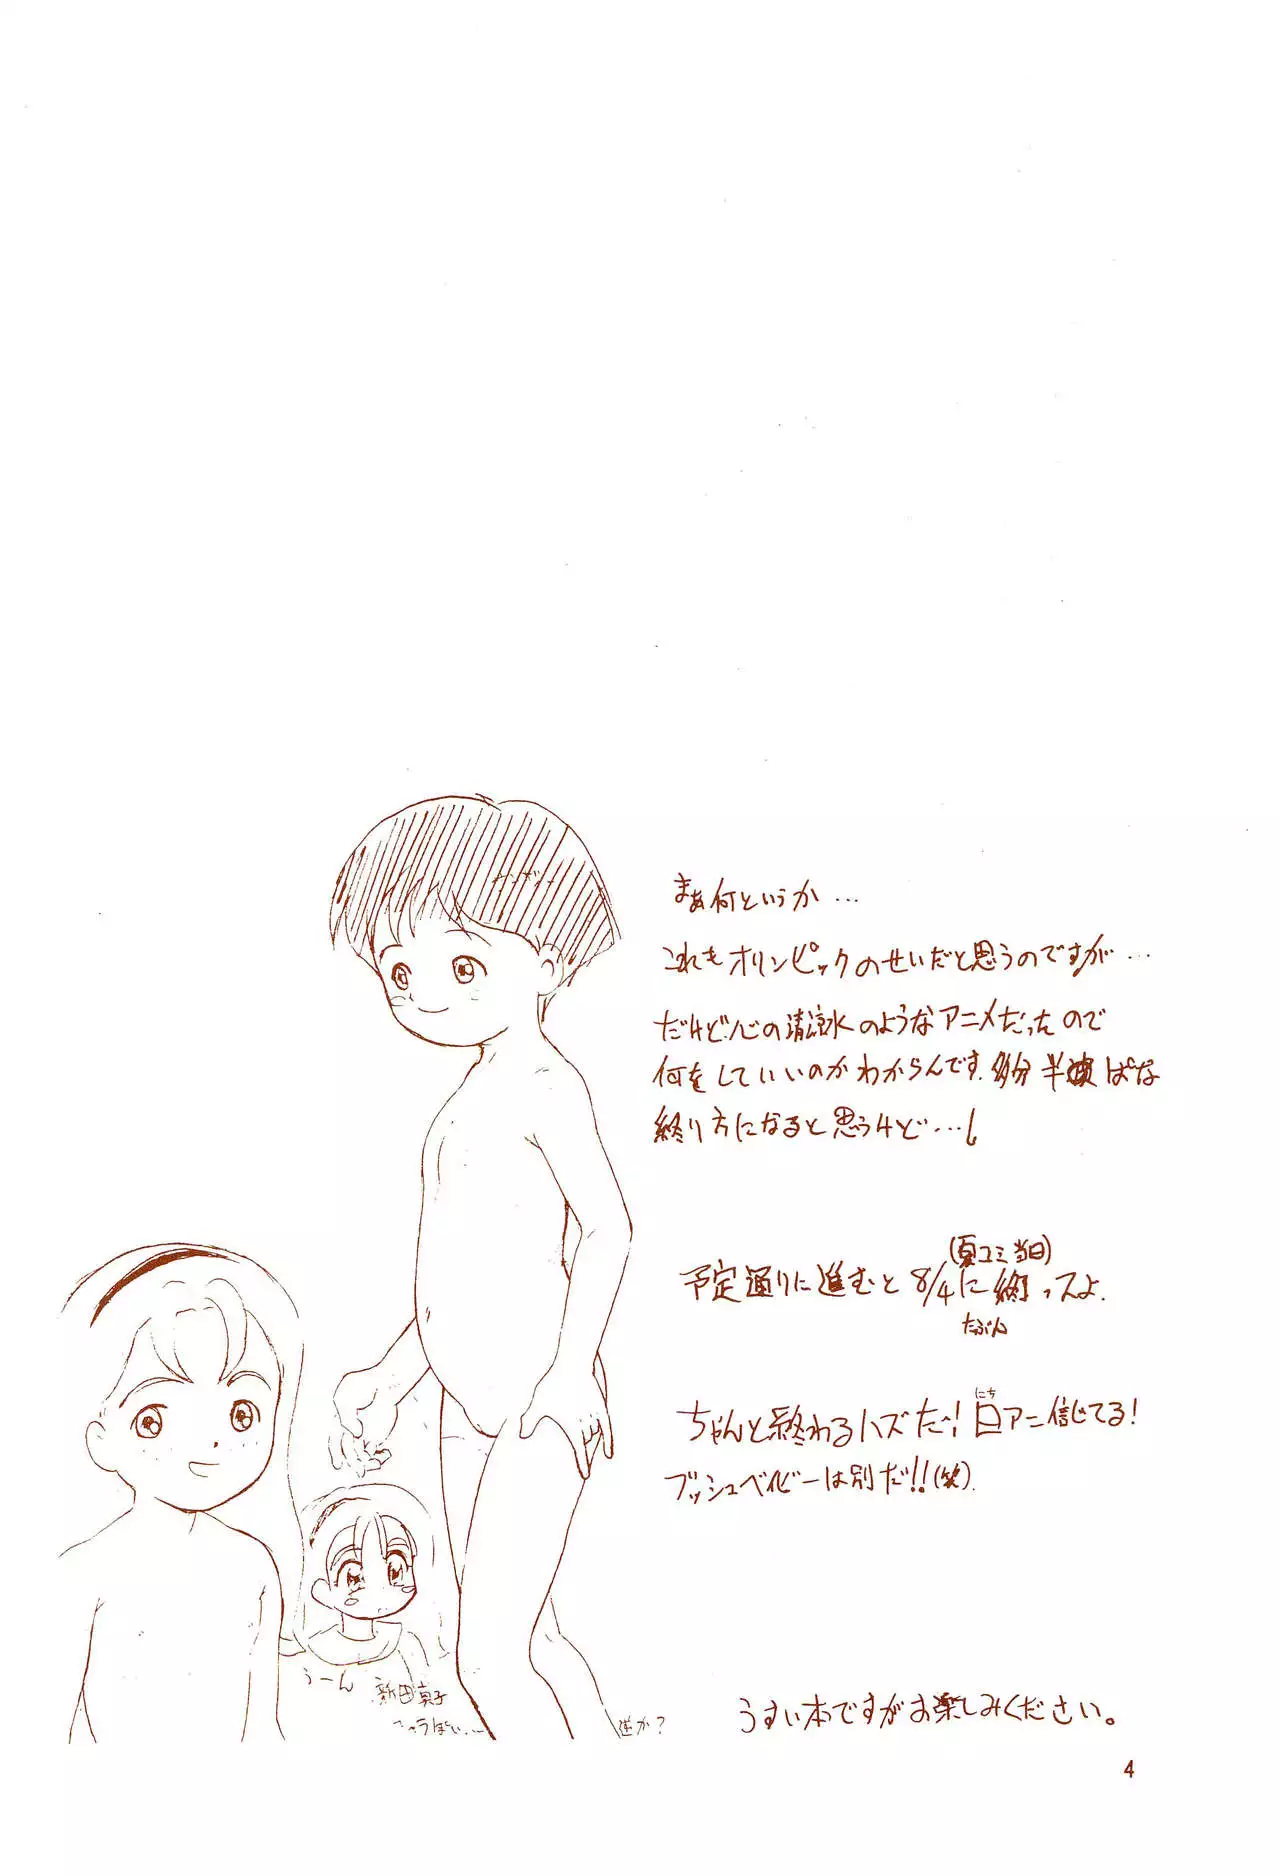 まあ何というか…
これもオリンピックのせいだと思うのですが…
だけど心の清涼水のようなアニメだったので
何をしていいのかわからんです。多分半
ぱな
終り方になると思うけど…
(夏コミ当日)
予定通りに進むと8/4に終ってよ.
たぶん
にち
ちゃんと終わるハズだ!日アニ信じてる!
ブッシュベイビーは別だ!!(笑).
うーん
新田真子
っぽい…
逆か?
うすい本ですがお楽しみください。
4